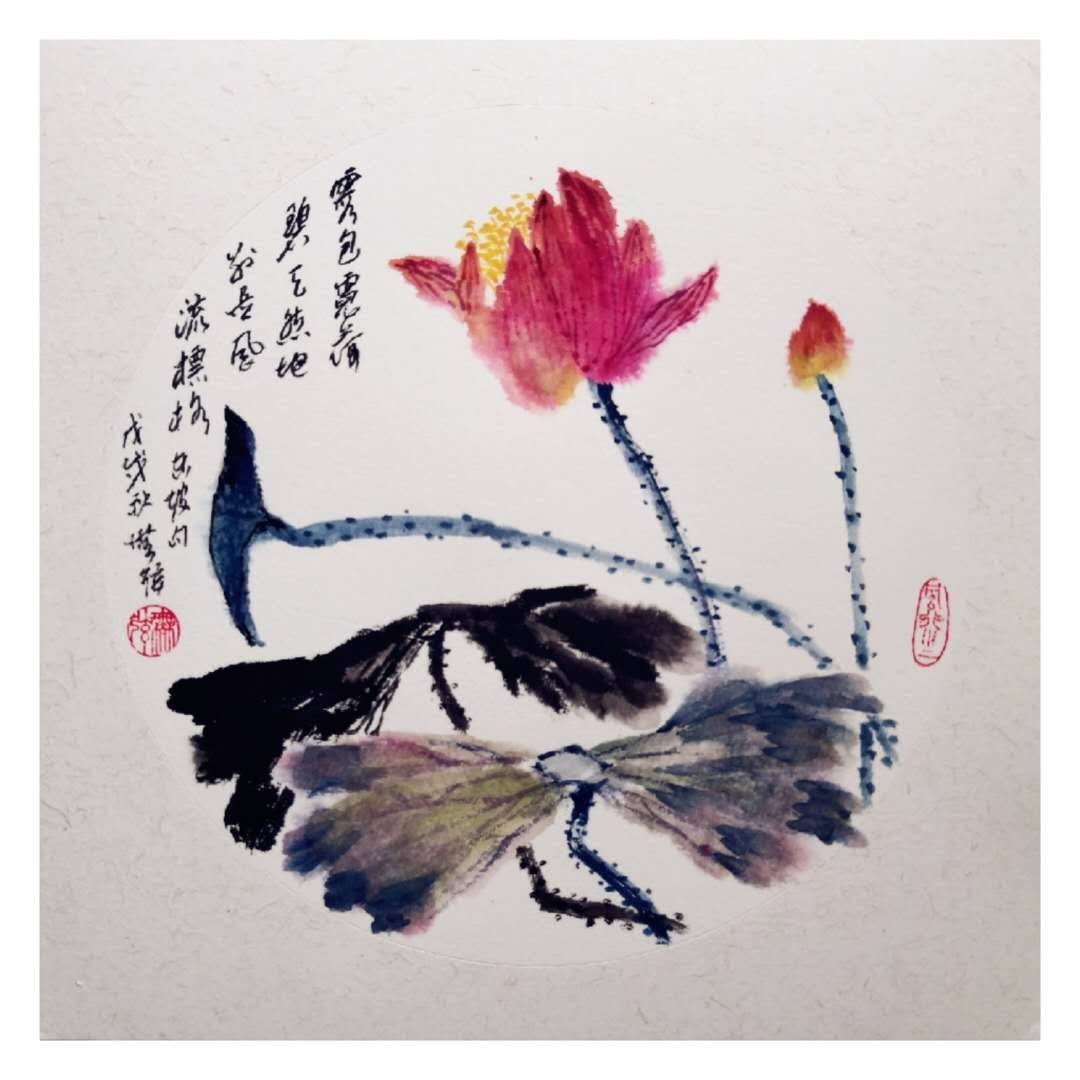 霞包霓荷
碧天然地
别是风
流標格 东坡句
戊戌秋